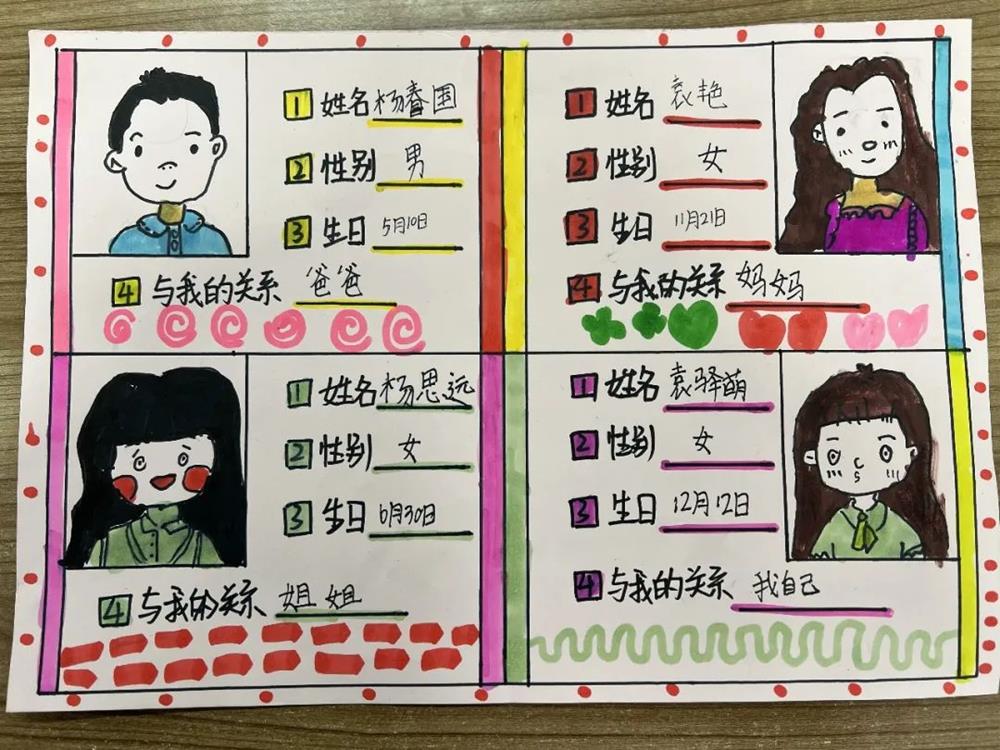 1 姓名 杨春国
2 性别 男
3 生日 5月10日
4 与我的关系 爸爸
1 姓名 袁艳
2 性别 女
3 生日 11月21日
4 与我的关系 妈妈
1 姓名 杨思远
2 性别 女
3 生日 6月30日
4 与我的关系 姐姐
1 姓名 袁驿萌
2 性别 女
3 生日 12月12日
4 与我的关系 我自己